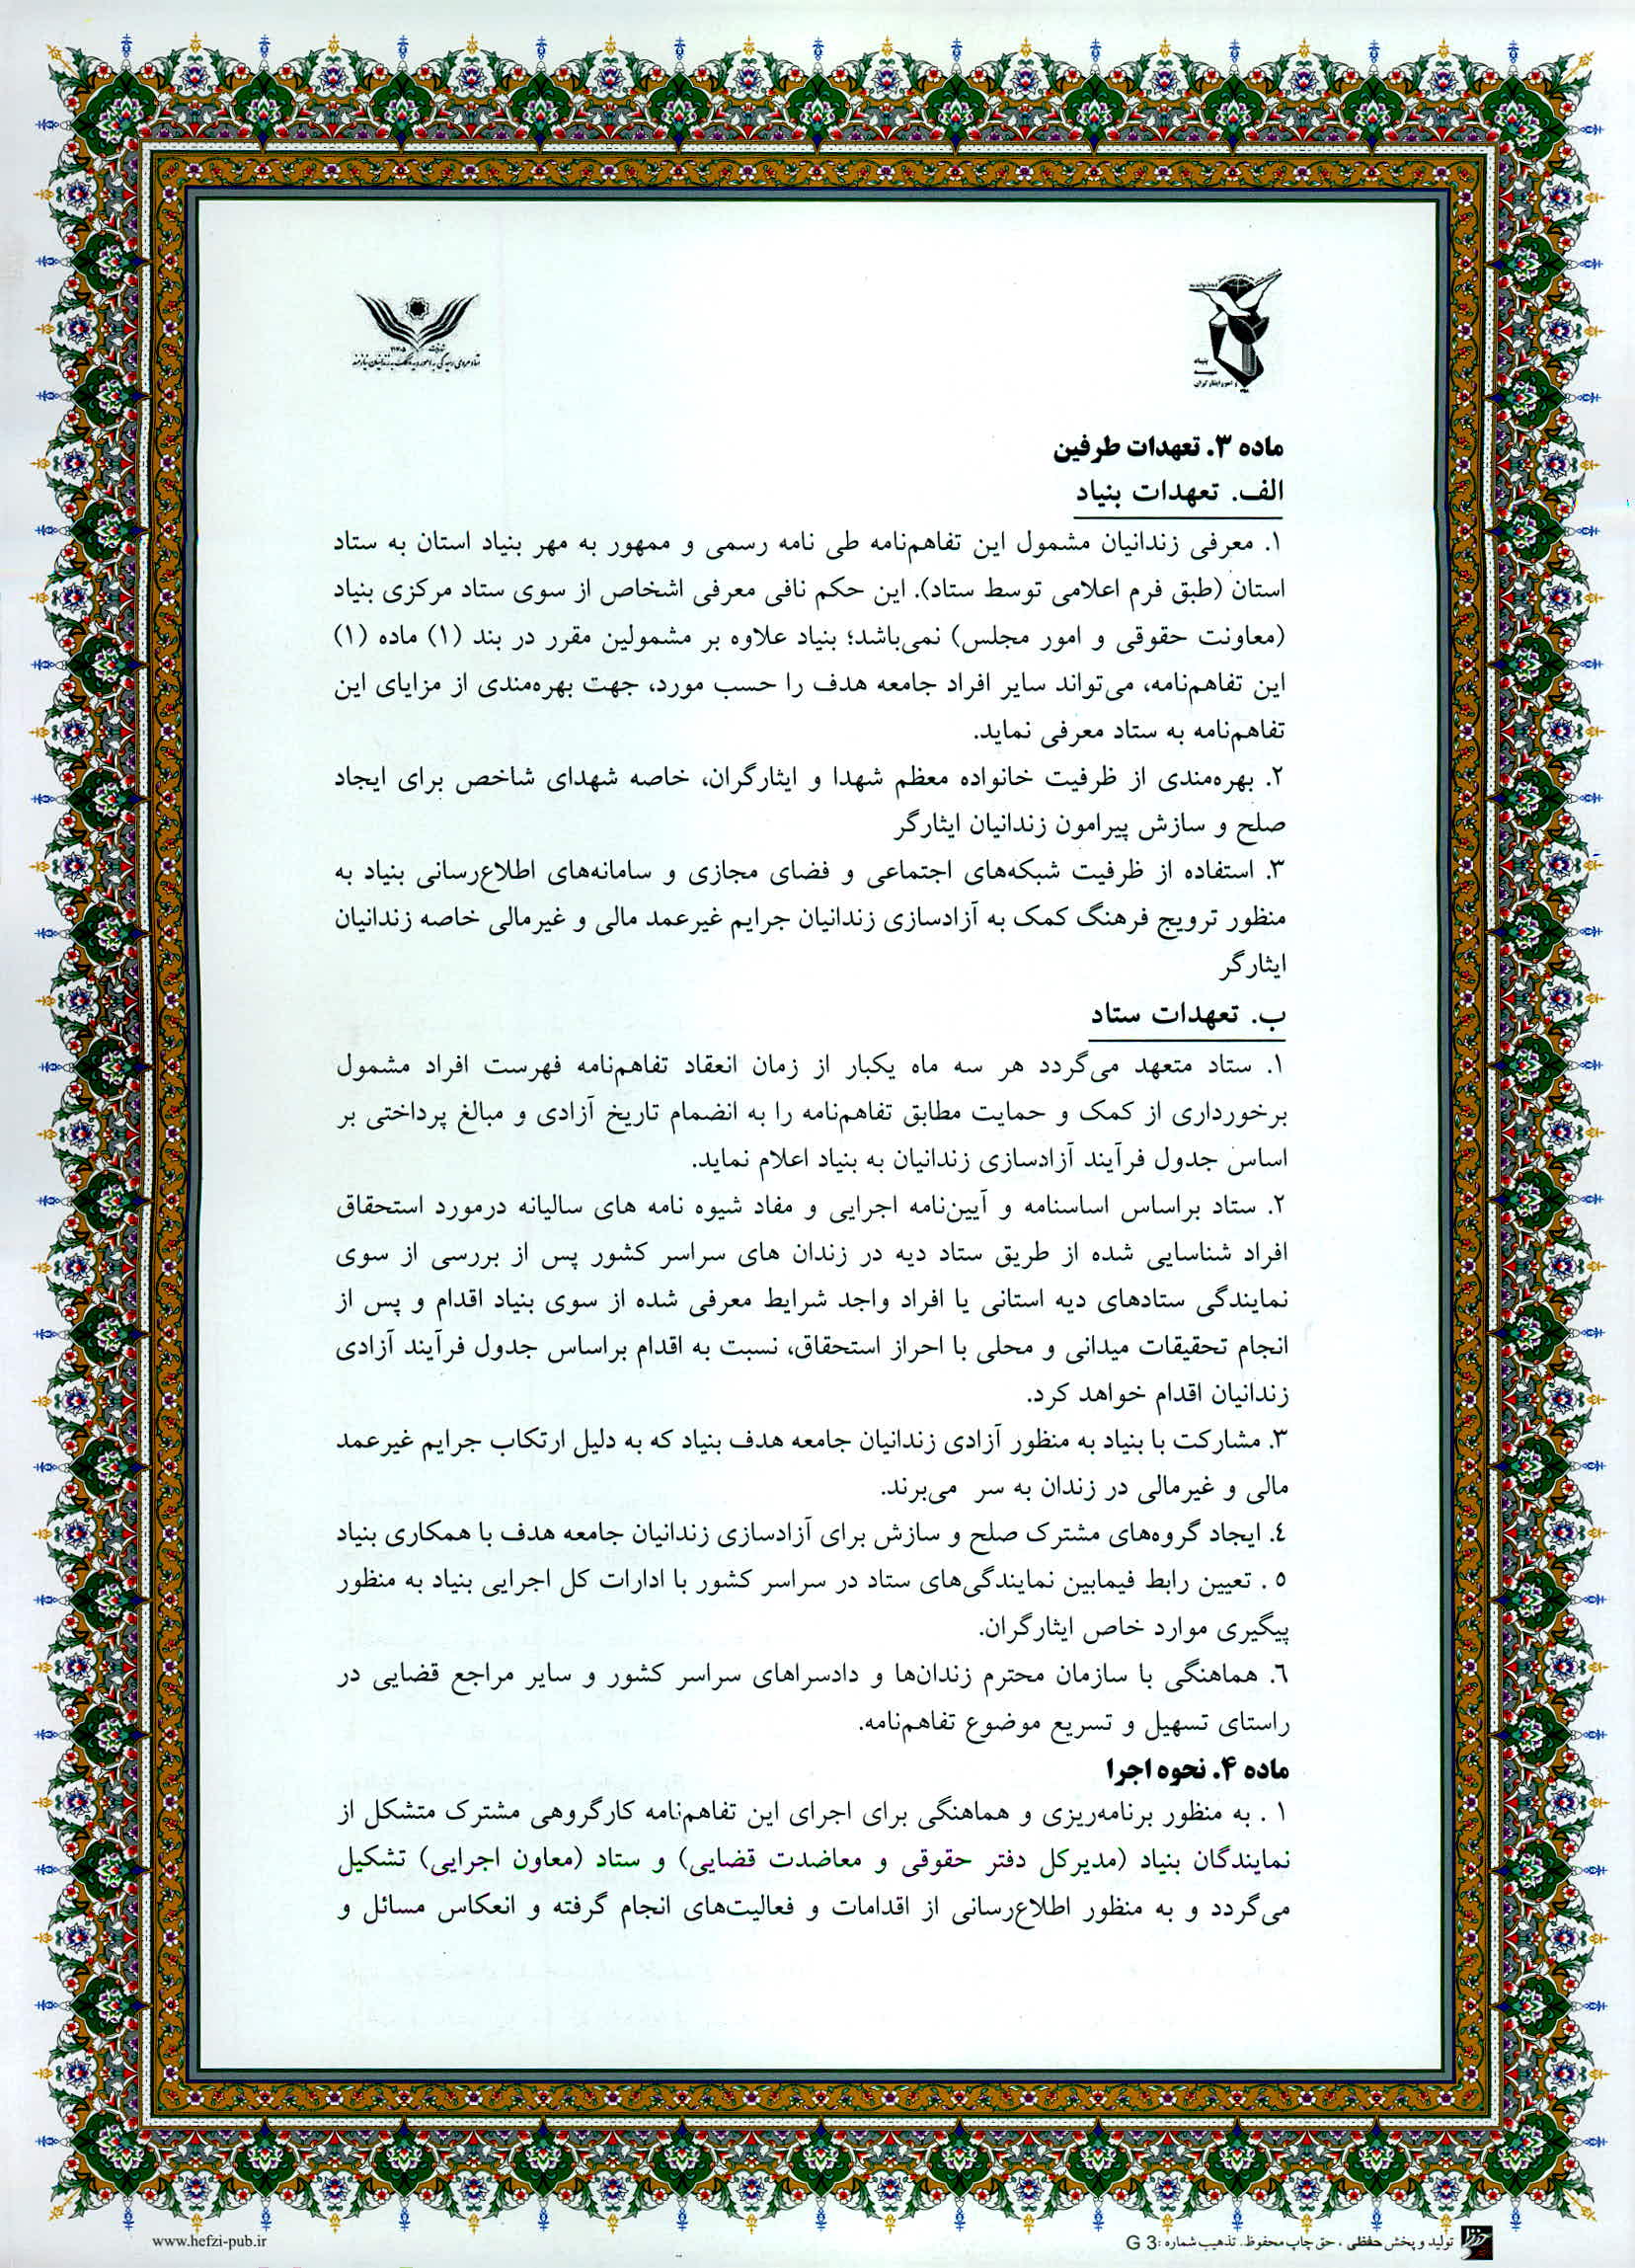 بنیاد
شهید
و امور ایثارگران
ماده ۳. تعهدات طرفین
الف. تعهدات بنیاد
۱. معرفی زندانیان مشمول این تفاهم‌نامه طی نامه رسمی و ممهور به مهر بنیاد استان به ستاد
استان (طبق فرم اعلامی توسط ستاد). این حکم نافی معرفی اشخاص از سوی ستاد مرکزی بنیاد
(معاونت حقوقی و امور مجلس) نمی‌باشد؛ بنیاد علاوه بر مشمولین مقرر در بند (۱) ماده (۱)
این تفاهم‌نامه، می‌تواند سایر افراد جامعه هدف را حسب مورد، جهت بهره‌مندی از مزایای این
تفاهم‌نامه به ستاد معرفی نماید.
۲. بهره‌مندی از ظرفیت خانواده معظم شهدا و ایثارگران، خاصه شهدای شاخص برای ایجاد
صلح و سازش پیرامون زندانیان ایثارگر
۳. استفاده از ظرفیت شبکه‌های اجتماعی و فضای مجازی و سامانه‌های اطلاع‌رسانی بنیاد به
منظور ترویج فرهنگ کمک به آزادسازی زندانیان جرایم غیرعمد مالی و غیرمالی خاصه زندانیان
ایثارگر
ب. تعهدات ستاد
۱. ستاد متعهد می‌گردد هر سه ماه یکبار از زمان انعقاد تفاهم‌نامه فهرست افراد مشمول
برخورداری از کمک و حمایت مطابق تفاهم‌نامه را به انضمام تاریخ آزادی و مبالغ پرداختی بر
اساس جدول فرآیند آزادسازی زندانیان به بنیاد اعلام نماید.
۲. ستاد براساس اساسنامه و آیین‌نامه اجرایی و مفاد شیوه نامه های سالیانه درمورد استحقاق
افراد شناسایی شده از طریق ستاد دیه در زندان های سراسر کشور پس از بررسی از سوی
نمایندگی ستادهای دیه استانی یا افراد واجد شرایط معرفی شده از سوی بنیاد اقدام و پس از
انجام تحقیقات میدانی و محلی با احراز استحقاق، نسبت به اقدام براساس جدول فرآیند آزادی
زندانیان اقدام خواهد کرد.
۳. مشارکت با بنیاد به منظور آزادی زندانیان جامعه هدف بنیاد که به دلیل ارتکاب جرایم غیرعمد
مالی و غیرمالی در زندان به سر می‌برند.
٤. ایجاد گروه‌های مشترک صلح و سازش برای آزادسازی زندانیان جامعه هدف با همکاری بنیاد
٥ . تعیین رابط فیمابین نمایندگی‌های ستاد در سراسر کشور با ادارات کل اجرایی بنیاد به منظور
پیگیری موارد خاص ایثارگران.
٦. هماهنگی با سازمان محترم زندان‌ها و دادسراهای سراسر کشور و سایر مراجع قضایی در
راستای تسهیل و تسریع موضوع تفاهم‌نامه.
ماده ۴. نحوه اجرا
۱ . به منظور برنامه‌ریزی و هماهنگی برای اجرای این تفاهم‌نامه کارگروهی مشترک متشکل از
نمایندگان بنیاد (مدیرکل دفتر حقوقی و معاضدت قضایی) و ستاد (معاون اجرایی) تشکیل
می‌گردد و به منظور اطلاع‌رسانی از اقدامات و فعالیت‌های انجام گرفته و انعکاس مسائل و
تولید و پخش حفظی ، حق چاپ محفوظ. تذهیب شماره: G 3
www.hefzi-pub.ir